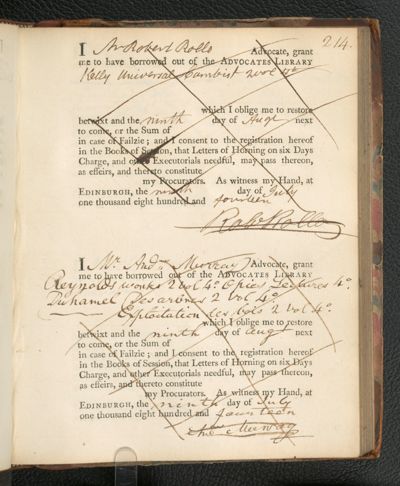 214.
I Mr Robert Rollo Advocate, grant
me to have borrowed out of the ADVOCATES LIBRARY
Kelly Universal Cambist 2 vol 4o
which I oblige me to restore
betwixt and the ninth day of Augt next
to come, or the Sum of
in case of Failzie; and I consent to the registration hereof
in the Books of Session, that Letters of Horning on six Days
Charge, and other Executorials needful, may pass thereon,
as effeirs, and thereto constitute
my Procurators. As witness my Hand, at
EDINBURGH, the ninth day of July
one thousand eight hundred and fourteen
Robt Rollo
I Mr Andw Murray Advocate, grant
me to have borrowed out of the ADVOCATES LIBRARY
Reynolds works 2 vol 4o Opies Lectures 4o.
Duhamel Des arbres 2 vol 4o.
Exploitation des bois 2 vol 4o.
which I oblige me to restore
betwixt and the ninth day of augt next
to come, or the Sum of
in case of Failzie; and I consent to the registration hereof
in the Books of Session, that Letters of Horning on six Days
Charge, and other Executorials needful, may pass thereon,
as effeirs, and thereto constitute
my Procurators. As witness my Hand, at
EDINBURGH, the ninth day of July
one thousand eight hundred and fourteen
Andw Murray